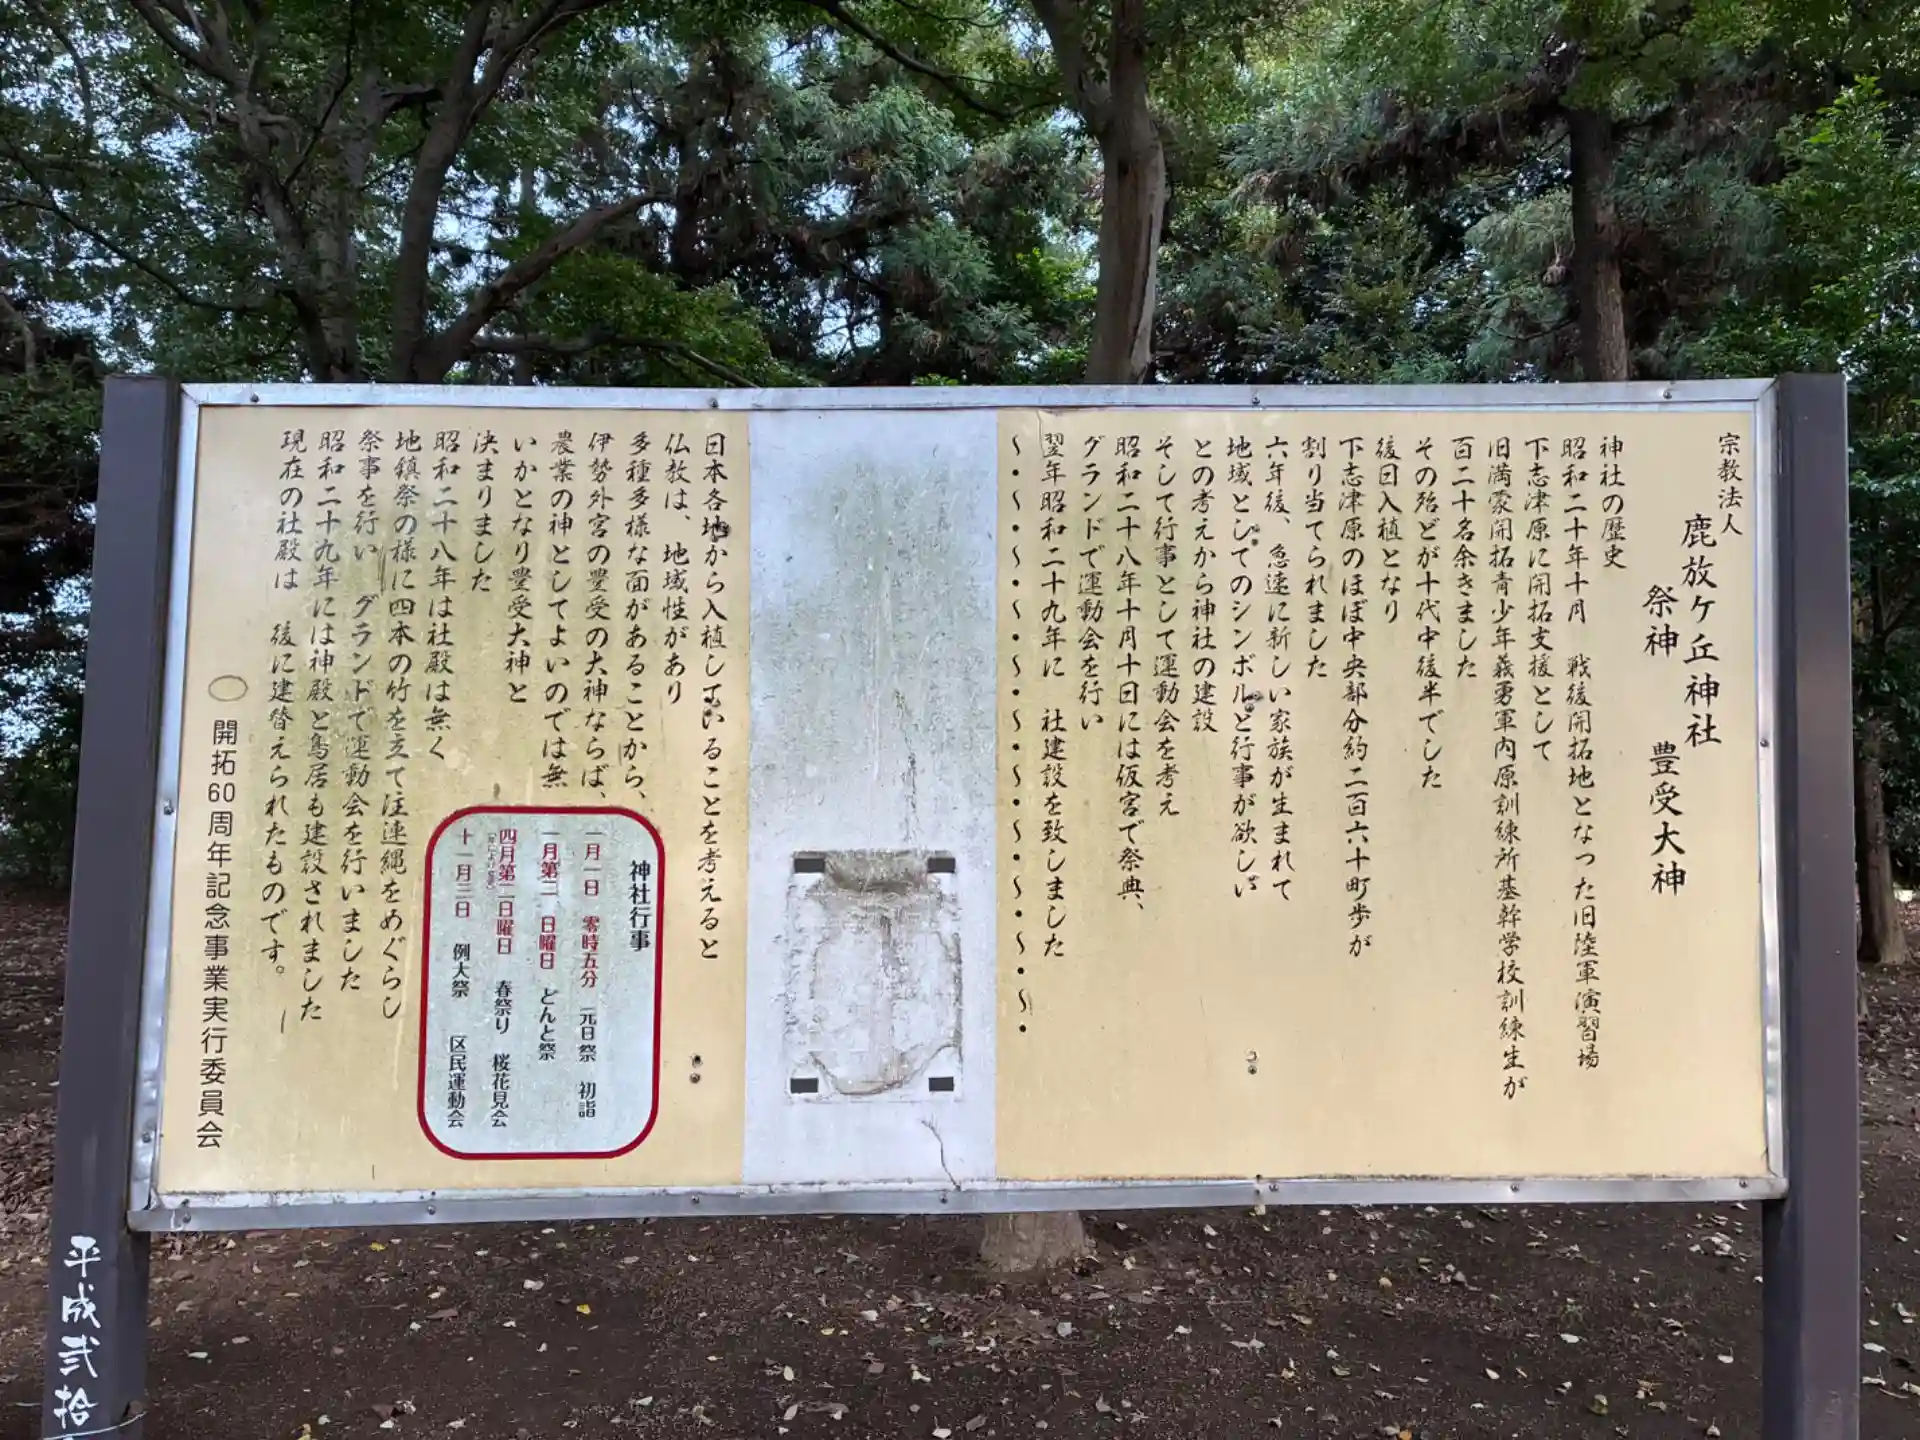 宗教法人
鹿放ケ丘神社
祭神　豊受大神
神社の歴史
昭和二十年十月　戦後開拓地となった旧陸軍演習場
下志津原に開拓支援として
旧満蒙開拓青少年義勇軍内原訓練所基幹学校訓練生が
百二十名余きました
その殆どが十代中後半でした
後日入植となり
下志津原のほぼ中央部分約二百六十町歩が
割り当てられました
六年後、急速に新しい家族が生まれて
地域としてのシンボルと行事が欲しい
との考えから神社の建設
そして行事として運動会を考え
昭和二十八年十月十日には仮宮で祭典、
グランドで運動会を行い
翌年昭和二十九年に　社建設を致しました
～・～・～・～・～・～・～・～・～・～・～・
日本各地から入植していることを考えると
仏教は、地域性があり
多種多様な面があることから、
伊勢外宮の豊受の大神ならば、
農業の神としてよいのでは無
いかとなり豊受大神と
決まりました
昭和二十八年は社殿は無く
地鎮祭の様に四本の竹を立て注連縄をめぐらし
祭事を行い　グランドで運動会を行いました
昭和二十九年には神殿と鳥居も建設されました
現在の社殿は　後に建替えられたものです。
開拓60周年記念事業実行委員会
神社行事
一月一日　零時五分　元日祭　初詣
一月第二　日曜日　どんと祭
四月第二日曜日　春祭り　桜花見会
十一月三日　例大祭　区民運動会
平成弐拾